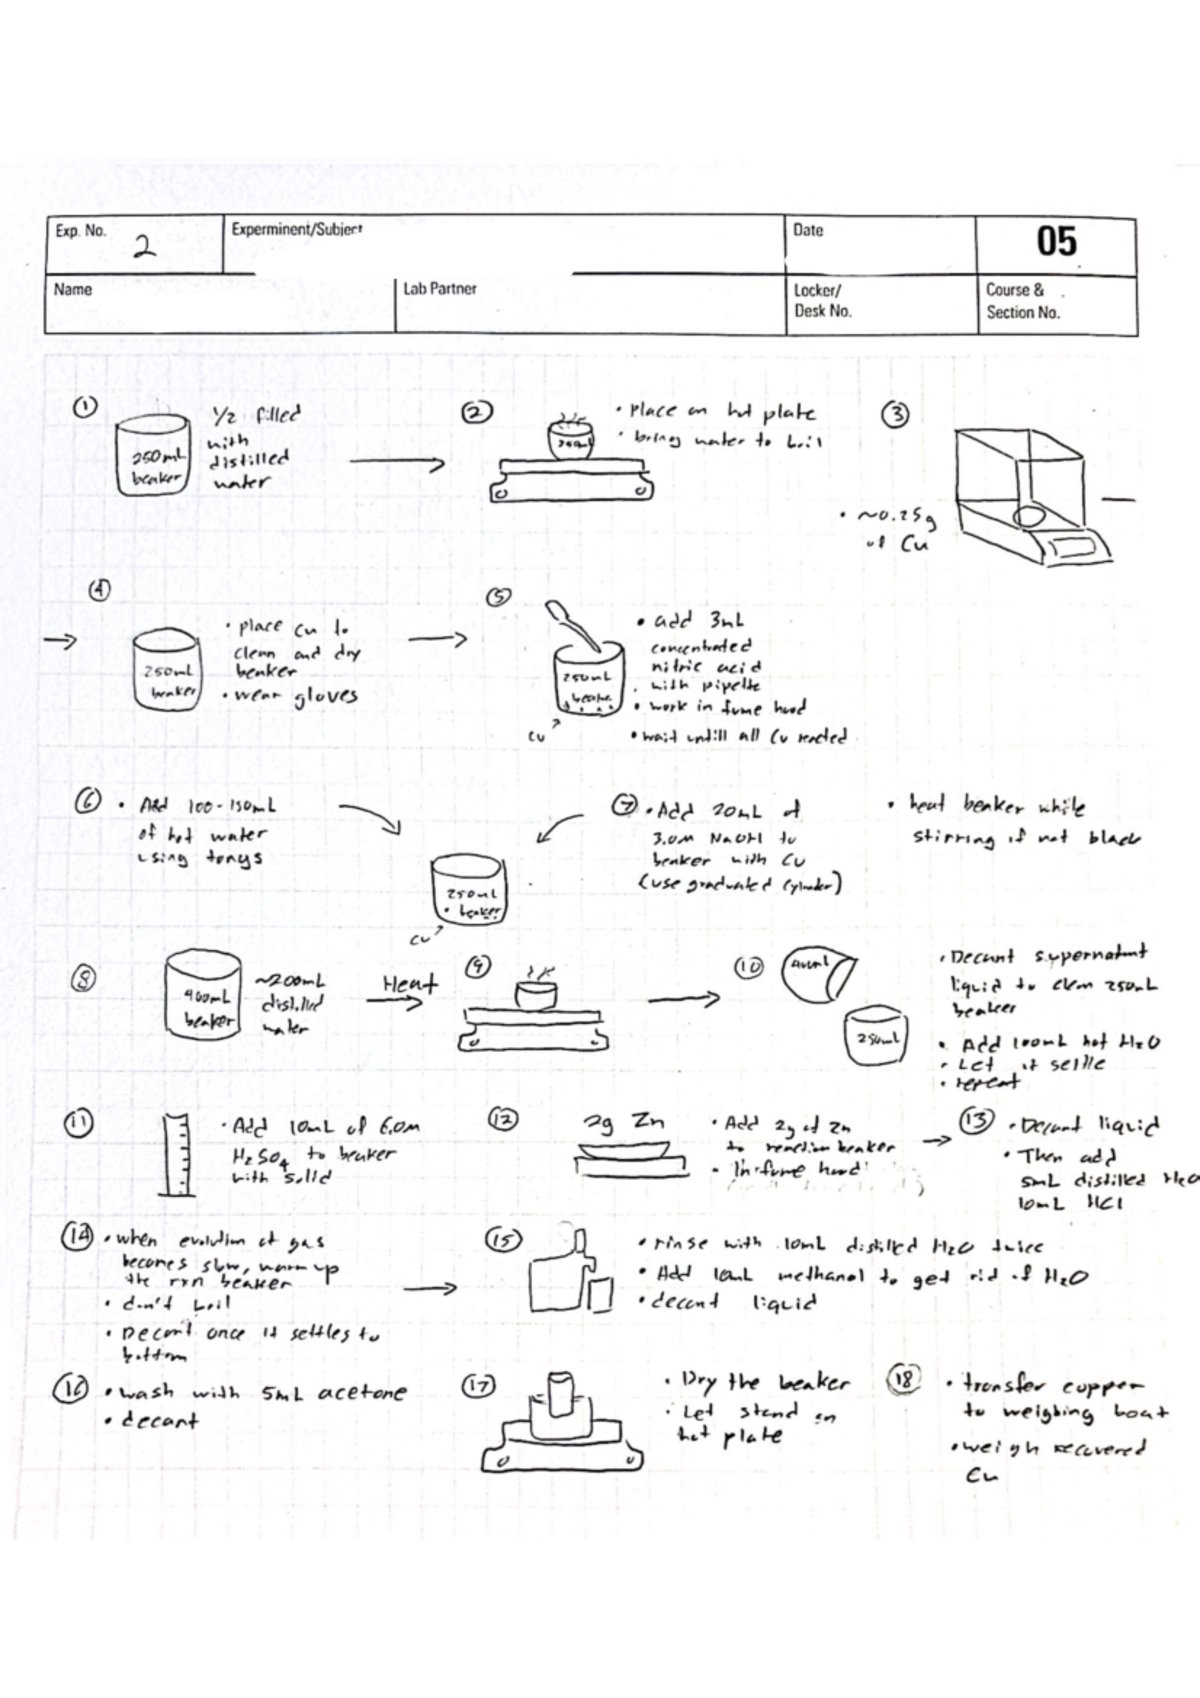 Exp. No.
2
Experminent/Subject
Date
05
Name
Lab Partner
Locker/
Desk No.
Course &
Section No.
①
250mL
beaker
1/2 filled
with
distilled
water
②
• place on hot plate
• bring water to boil
③
• ~0.25g
of Cu
④
250mL
beaker
• place Cu to
clean and dry
beaker
• wear gloves
⑤
250mL
Cu
• add 3mL
concentrated
nitric acid
• with pipette
• work in fume hood
• wait untill all Cu reacted
⑥ • Add 100-150mL
of hot water
using tongs
250mL
• beaker
Cu
⑦ • Add 20mL of
3.0M NaOH to
beaker with Cu
(use graduated cylinder)
• heat beaker while
stirring if not black
⑧
400mL
beaker
~200mL
distilled
water
Heat
⑨
⑩
400mL
250mL
• Decant supernatant
liquid to clean 250mL
beaker
• Add 100mL hot H2O
• Let it settle
• repeat
⑪
• Add 10mL of 6.0M
H2SO4 to beaker
with solid
⑫
2g Zn
• Add 2g of Zn
to reaction beaker
• In fume hood
⑬ • Decant liquid
• Then add
5mL distilled H2O
10mL HCl
⑭ • when evolution of gas
becomes slow, warm up
the rxn beaker
• don't boil
• Decant once it settles to
bottom
⑮
• rinse with 10mL distilled H2O twice
• Add 10mL methanol to get rid of H2O
• decant liquid
⑯ • wash with 5mL acetone
• decant
⑰
• Dry the beaker
• Let stand on
hot plate
⑱ • transfer copper
to weighing boat
• weigh recovered
Cu